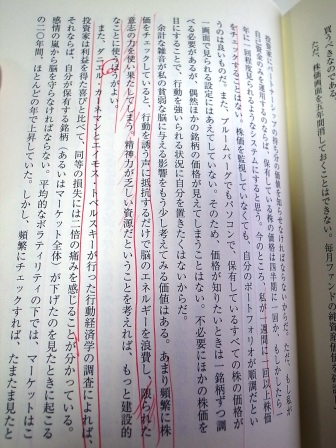 買うべきなのである。
ただ、株価画面を五年間消しておくことはできない。毎月ファンドの純資産
投資家にパートナーシップの持ち分の価値を知らせなければならないからだ。ただ、もし私が
自己資金のみを運用するのならば、保有している株の価格は四半期に一回か、もしかしたら、
年に一回程度見られるようなシステムにすると思う。今のところ、私が一週間に一回以上株価
をチェックすることはない。株価を監視していなくても、自分のポートフォリオが順調だとい
うのは良いものだ。また、ブルームバーグでもパソコンで、保有しているすべての株の価格が
一画面で見られる設定にはあえてしていない。そのため、価格が知りたいときは一銘柄ずつ調
べる必要があるが、偶然ほかの銘柄の価格が見えてしまうことはない。不必要にほかの株価を
目にすることで、行動を強いられる状況に自分を置きたくはないからだ。
余計な雑音が私の貧弱な脳に与える影響をもう少し考えてみる価値はある。あまり頻繁に株
価をチェックしていると、行動を誘う声に抵抗するだけで脳のエネルギーを浪費し、限られた
意志の力を使い果たしてしまう。精神力が乏しい資源だということを考えれば、もっと建設的
なことに使うほうがよい。
また、ダニエル・カーネマンとエイモス・トベルスキーが行った行動経済学の調査によれば、
投資家は利益を得た喜びと比べて、同等の損失には二倍の痛みを感じることが分かっている。
それならば、自分が保有する銘柄(あるいはマーケット全体)が下げたのを見たときに起こる
感情の嵐から脳を守らなければならない。平均的なボラティリティの下では、マーケットはこ
の二〇年間、ほとんどの年で上昇していた。しかし、頻繁にチェックすれば、たまたま見たと